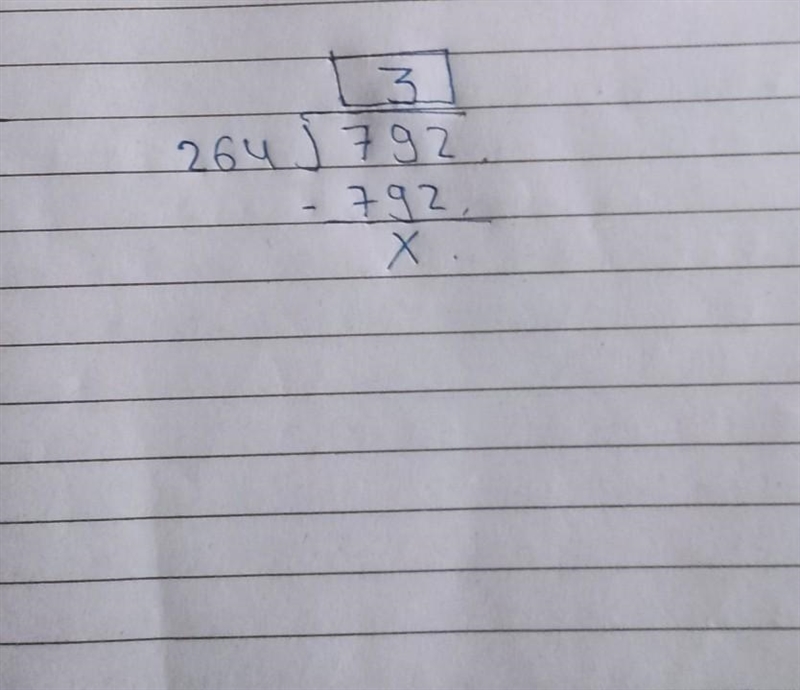 3
264 ) 792
- 792
X